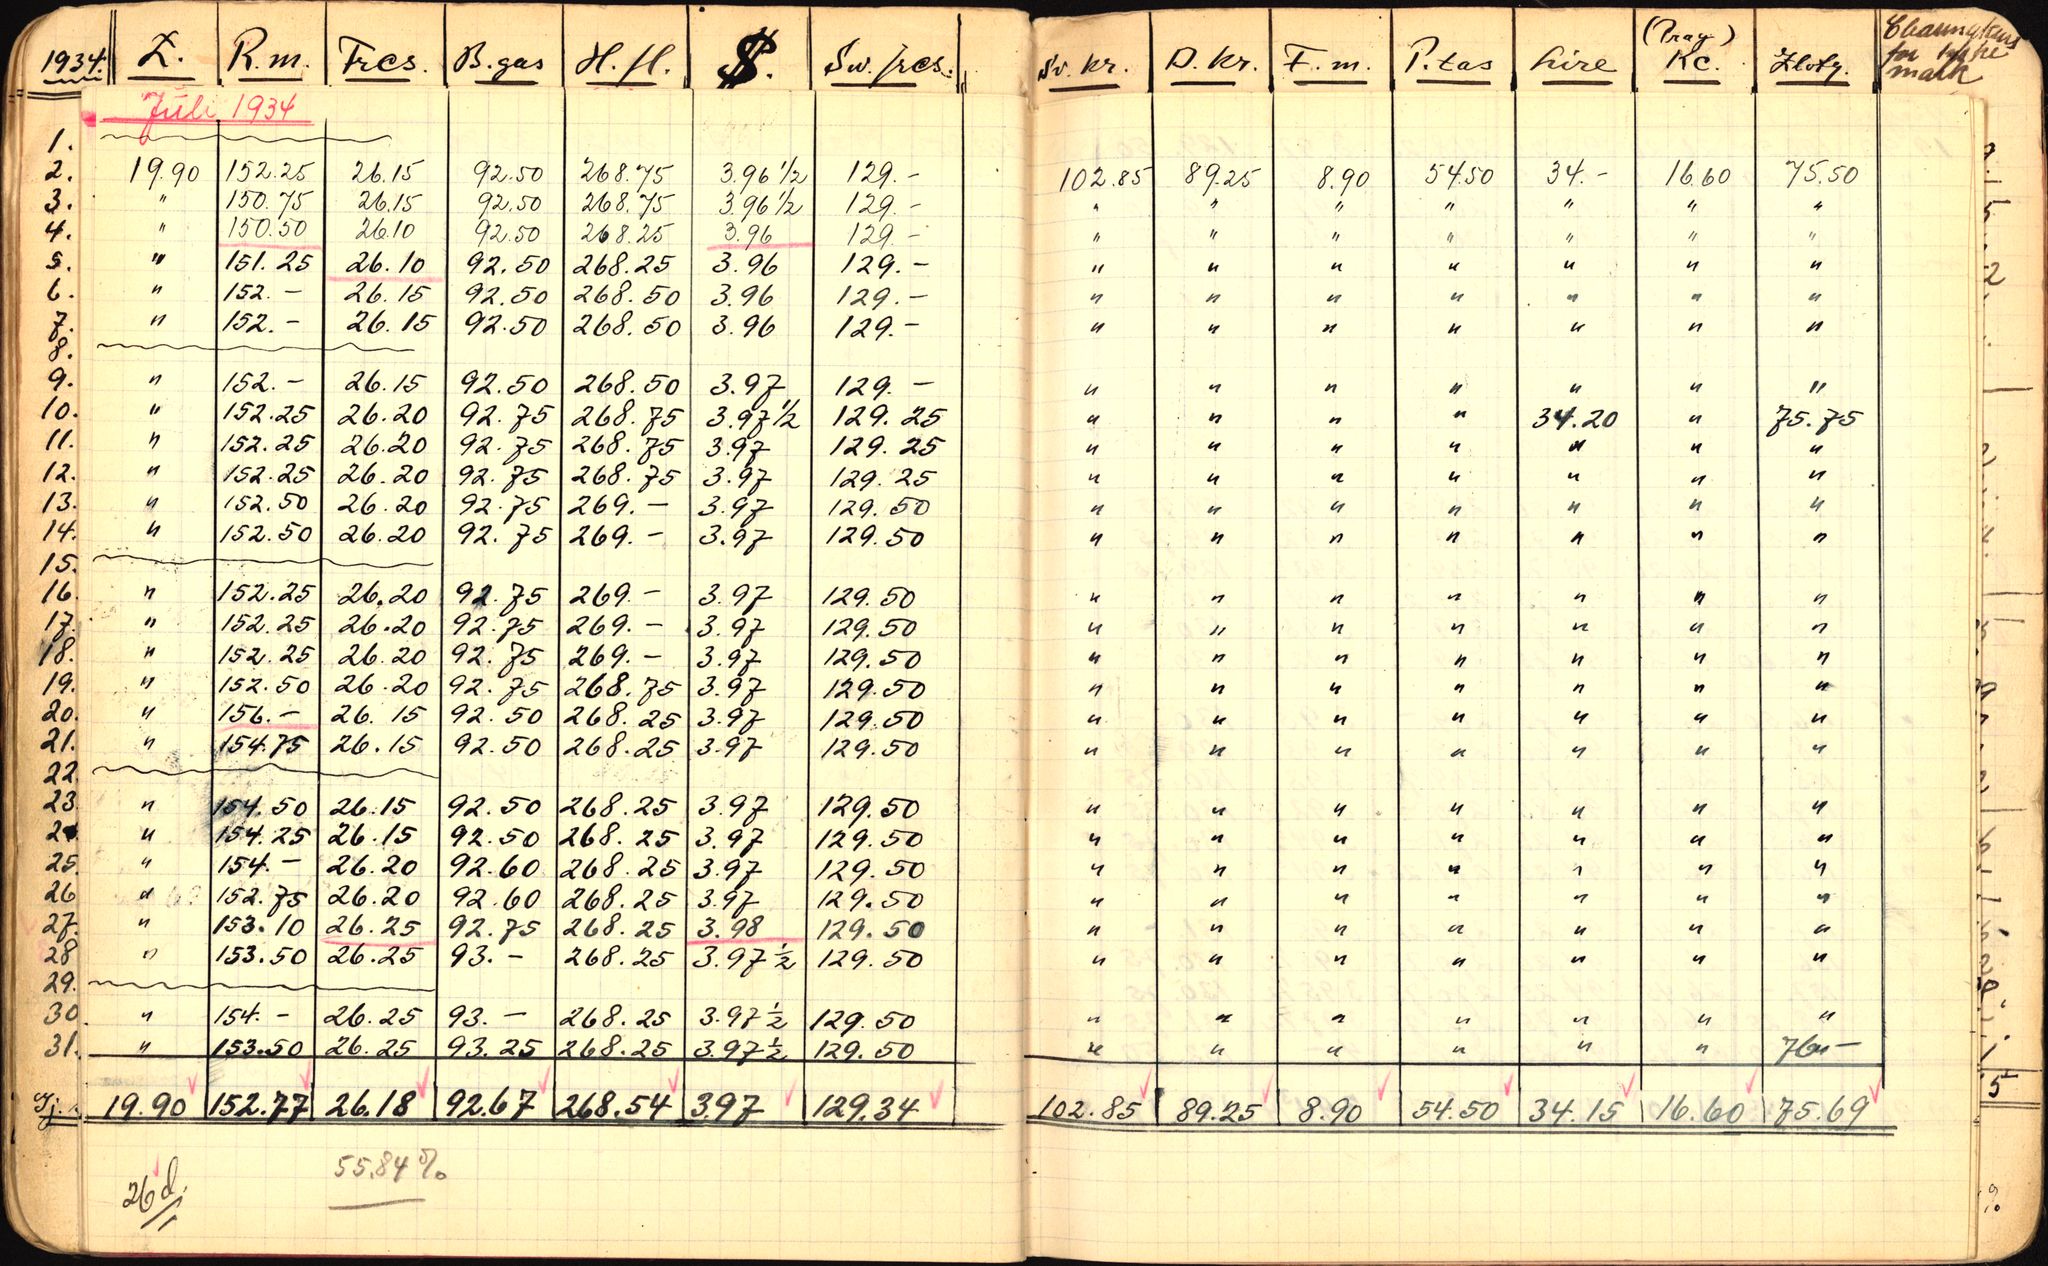 1934. £. R.m. Frcs. B.gas H.fl. $. Sw.frcs. Sv. kr. D. kr. F.m. P.tas Lire (Prag) Kc. Zloty. for mark
Juli 1934
1.
2. 19.90 152.25 26.15 92.50 268.75 3.96 1/2 129.- 102.85 89.25 8.90 54.50 34.- 16.60 75.50
3. " 150.75 26.15 92.50 268.75 3.96 1/2 129.- " " " " " " "
4. " 150.50 26.10 92.50 268.25 3.96 129.- " " " " " " "
5. " 151.25 26.10 92.50 268.25 3.96 129.- " " " " " " "
6. " 152.- 26.15 92.50 268.50 3.96 129.- " " " " " " "
7. " 152.- 26.15 92.50 268.50 3.96 129.- " " " " " " "
8.
9. " 152.- 26.15 92.50 268.50 3.97 129.- " " " " " " "
10. " 152.25 26.20 92.75 268.75 3.97 1/2 129.25 " " " " 34.20 " 75.75
11. " 152.25 26.20 92.75 268.75 3.97 129.25 " " " " " " "
12. " 152.25 26.20 92.75 268.75 3.97 129.25 " " " " " " "
13. " 152.50 26.20 92.75 269.- 3.97 129.50 " " " " " " "
14. " 152.50 26.20 92.75 269.- 3.97 129.50 " " " " " " "
15.
16. " 152.25 26.20 92.75 269.- 3.97 129.50 " " " " " " "
17. " 152.25 26.20 92.75 269.- 3.97 129.50 " " " " " " "
18. " 152.25 26.20 92.75 269.- 3.97 129.50 " " " " " " "
19. " 152.50 26.20 92.75 268.75 3.97 129.50 " " " " " " "
20. " 156.- 26.15 92.50 268.25 3.97 129.50 " " " " " " "
21. " 154.75 26.15 92.50 268.25 3.97 129.50 " " " " " " "
22.
23. " 154.50 26.15 92.50 268.25 3.97 129.50 " " " " " " "
24 " 154.25 26.15 92.50 268.25 3.97 129.50 " " " " " " "
25. " 154.- 26.20 92.60 268.25 3.97 129.50 " " " " " " "
26 " 152.75 26.20 92.60 268.25 3.97 129.50 " " " " " " "
27. " 153.10 26.25 92.75 268.25 3.98 129.50 " " " " " " "
28 " 153.50 26.25 93.- 268.25 3.97 1/2 129.50 " " " " " " "
29.
30. " 154.- 26.25 93.- 268.25 3.97 1/2 129.50 " " " " " " "
31. " 153.50 26.25 93.25 268.25 3.97 1/2 129.50 " " " " " " 76.-
Gj. 19.90 152.77 26.18 92.67 268.54 3.97 129.34 102.85 89.25 8.90 54.50 34.15 16.60 75.69
26 d. 55.84%